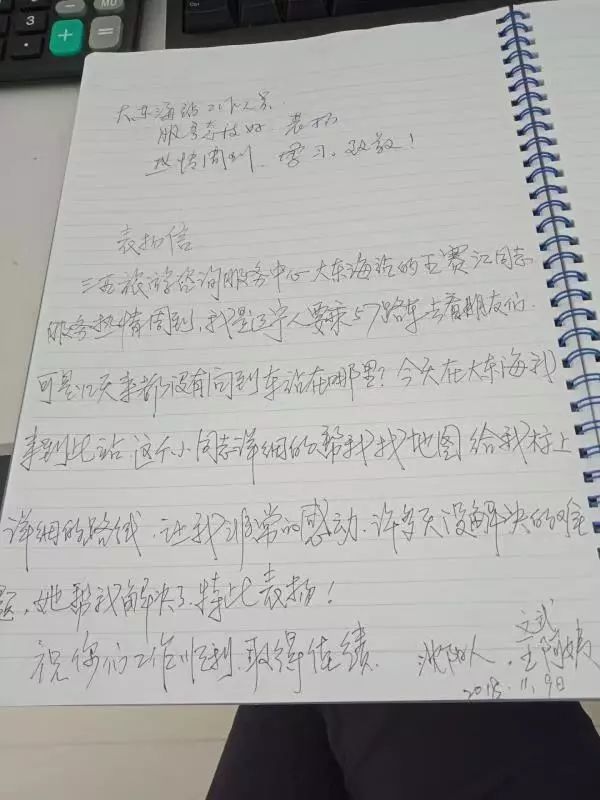 MU
3
+
大东海站工作人员.
服务态度好 表扬
热情周到. 学习、致敬!
表扬信
三亚旅游咨询服务中心大东海站的王赛江同志
服务热情周到,我是辽宁人要乘57路车去看朋友们.
可是12天来都没有问到车站在哪里?今天在大东海我
来到此站.这个小同志详细的帮我找地图给我标上
详细的路线.让我非常的感动.许多天没解决的难
题,她帮我解决了.特此表扬!
祝你们工作顺利.取得佳绩.
沈阳人.王阿姨
2018.11.9日